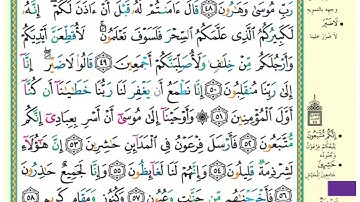 رَبِّ مُوسَىٰ وَهَٰرُونَ ﴿٤٨﴾ قَالَ ءَامَنتُمْ لَهُۥ قَبْلَ أَنْ ءَاذَنَ لَكُمْ ۖ إِنَّهُۥ
لَكَبِيرُكُمُ ٱلَّذِى عَلَّمَكُمُ ٱلسِّحْرَ فَلَسَوْفَ تَعْلَمُونَ ۚ لَأُقَطِّعَنَّ أَيْدِيَكُمْ
وَأَرْجُلَكُم مِّنْ خِلَٰفٍ وَلَأُصَلِّبَنَّكُمْ أَجْمَعِينَ ﴿٤٩﴾ قَالُوا۟ لَا ضَيْرَ ۖ إِنَّآ
إِلَىٰ رَبِّنَا مُنقَلِبُونَ ﴿٥٠﴾ إِنَّا نَطْمَعُ أَن يَغْفِرَ لَنَا رَبُّنَا خَطَٰيَٰنَآ أَن كُنَّآ
أَوَّلَ ٱلْمُؤْمِنِينَ ﴿٥١﴾ وَأَوْحَيْنَآ إِلَىٰ مُوسَىٰٓ أَنْ أَسْرِ بِعِبَادِىٓ إِنَّكُم
مُّتَّبَعُونَ ﴿٥٢﴾ فَأَرْسَلَ فِرْعَوْنُ فِى ٱلْمَدَآئِنِ حَٰشِرِينَ ﴿٥٣﴾ إِنَّ هَٰٓؤُلَآءِ
لَشِرْذِمَةٌ قَلِيلُونَ ﴿٥٤﴾ وَإِنَّهُمْ لَنَا لَغَآئِظُونَ ﴿٥٥﴾ وَإِنَّا لَجَمِيعٌ حَٰذِرُونَ
﴿٥٦﴾ فَأَخْرَجْنَٰهُم مِّن جَنَّٰتٍ وَعُيُونٍ ﴿٥٧﴾ وَكُنُوزٍ وَمَقَامٍ كَرِيمٍ ﴿٥٨﴾
لَا ضَيْرَ
لا ضرر علينا
إِنَّكُم مُّتَّبَعُونَ